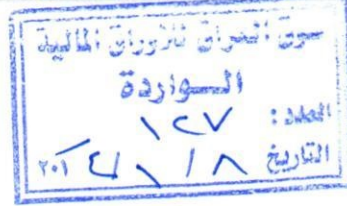 سوق العراق للأوراق المالية
الواردة
العدد : ١٢٧
التاريخ ٨ / ١ / ٢٠١٤